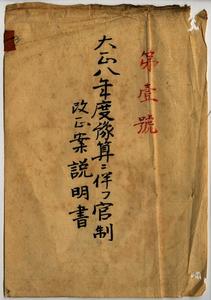 第壹號
大正八年度豫算ニ伴フ官制
改正案説明書